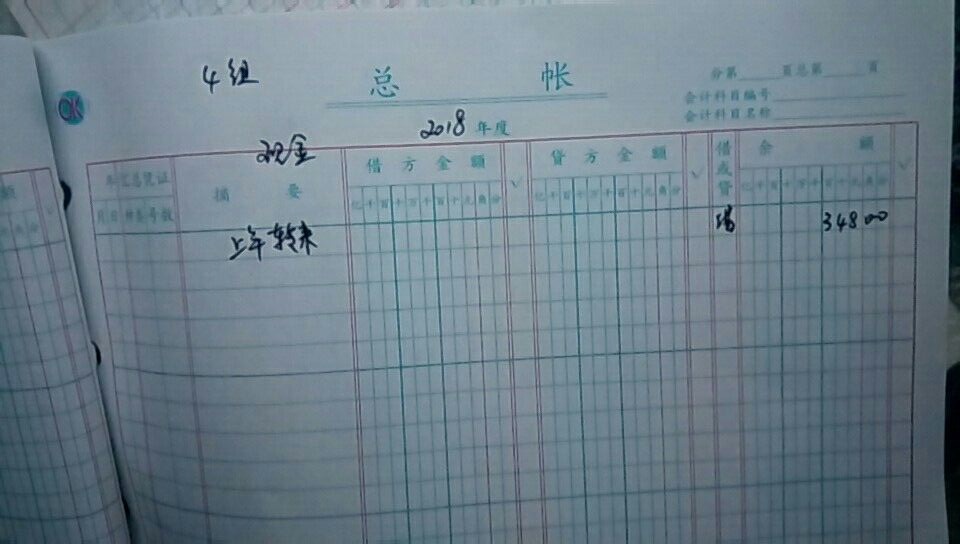 4组
总 帐
分第 页总第 页
会计科目编号
会计科目名称
2018 年度
现金
摘 要
借方金额
√
贷方金额
借或贷
√
余 额
√
月 日 种类 号数
亿千百十万千百十元角分
亿千百十万千百十元角分
亿千百十万千百十元角分
上年转来 借 34800
额
CK